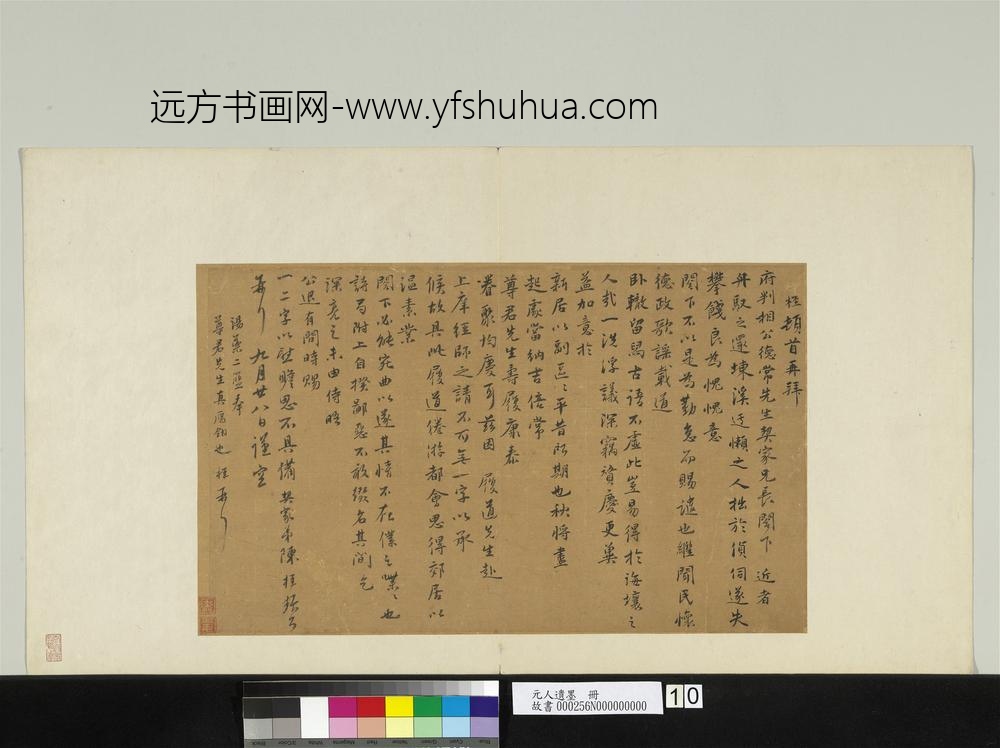 远方书画网-www.yfshuhua.com
頓首再拜
府判相公德常先生契家兄長閣下 近者
舟馭之還東溪迂懶之人拙於偵伺遂失
攀餞良為愧愧意
閣下不以是為勤怠而賜譴也繼聞民懷
德政歌謠載道
臥轍留舄古語不虛此豈易得於海壤之
人哉一洗浮議深竊資慶更冀
益加意於
新居以副區〻平昔所期也秋將盡
起處當納吉倍常
尊君先生壽履康泰
眷聚均慶可茲因 履道先生赴
上庠經師之請不可無一字以承
候故具此履道倦游都會思得郊居以
溫素業
閣下必能宛曲以遂其情不在僕之喋〻也
詩句附上自揆鄙惡不敢綴名其間乞
深亮之未由侍晤
公退有間時賜
一二字以慰瞻思不具備 契家弟陳
九月廿八日謹空
湯藥二 奉
尊君先生真 也
元人遺墨 冊
故書 000256N000000000
10
Black
3/Color
White
Magenta
Red
Yellow
Green
Cyan
Blue